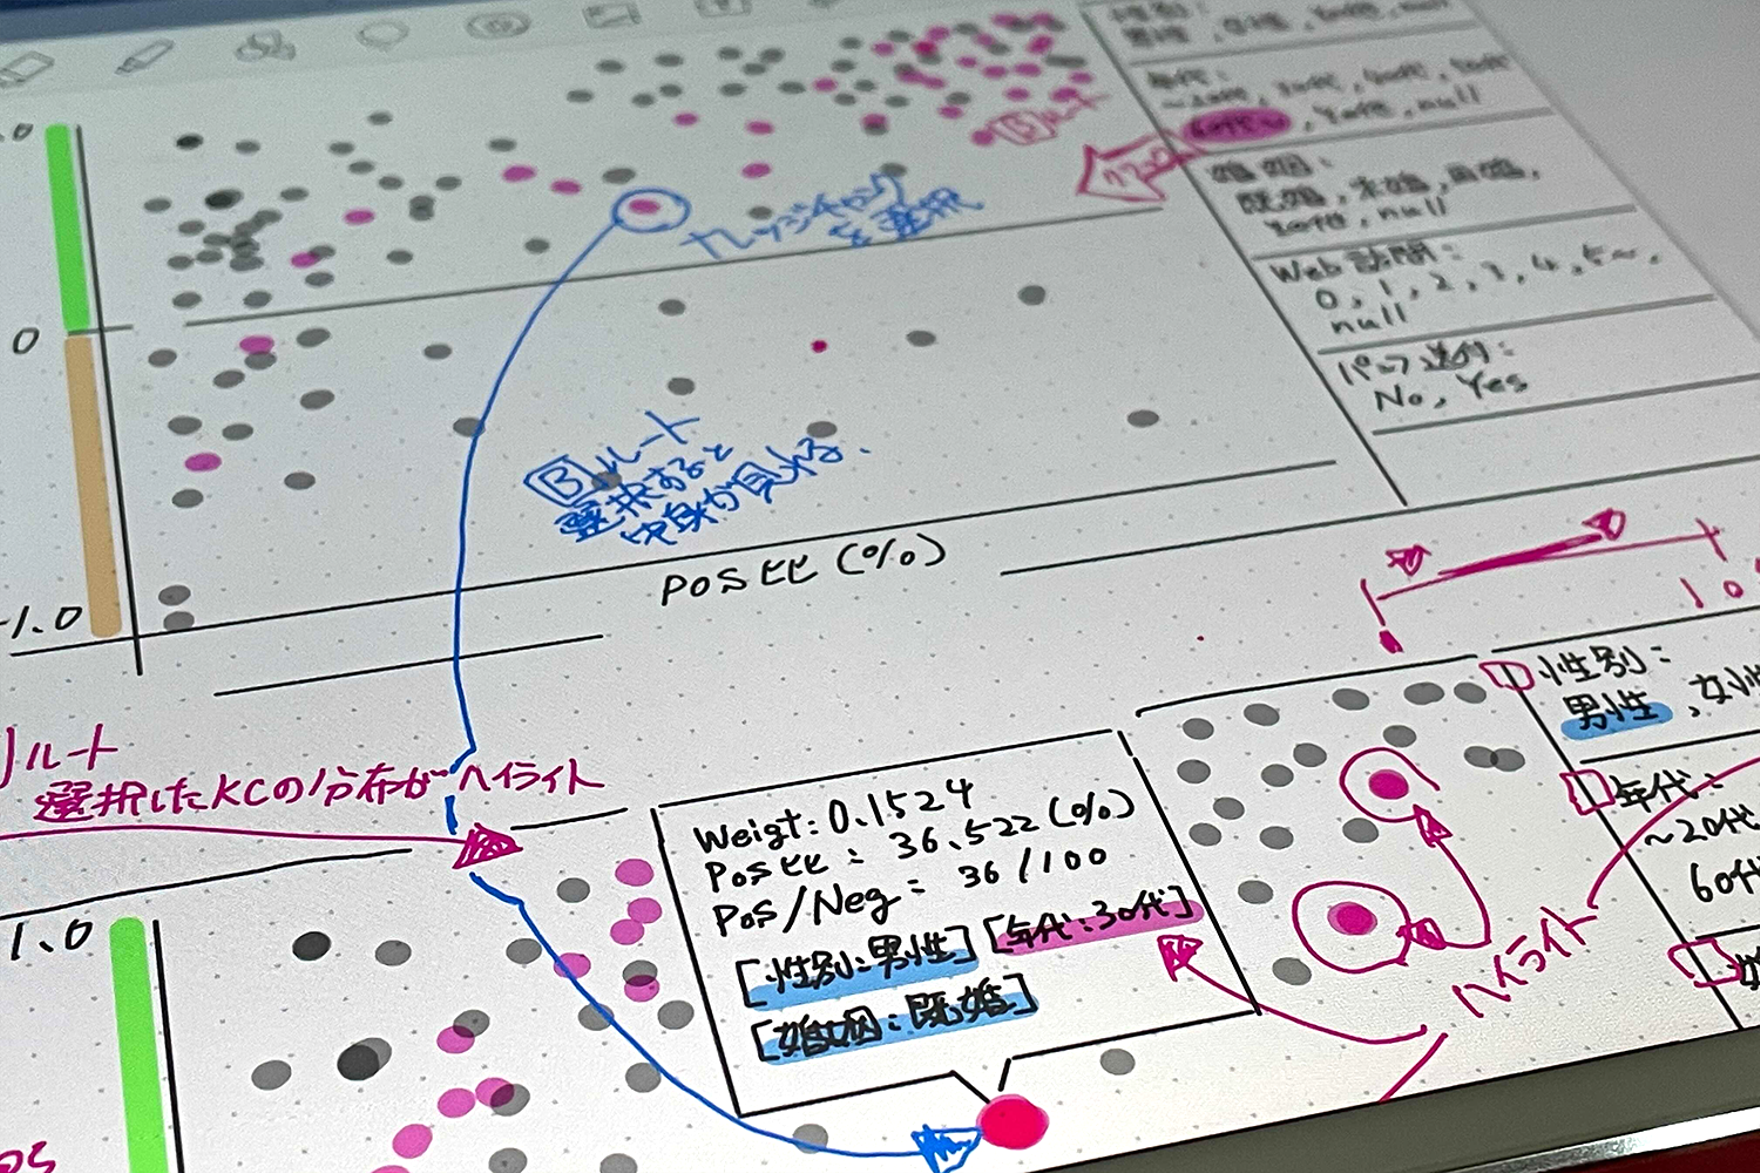 ~20代, 30代, 40代, 50代
60代~, その他, null
婚姻:
既婚, 未婚, 再婚,
その他, null
Web訪問:
0, 1, 2, 3, 4, 5~,
null
パンフ送付:
No, Yes
Bルート
ナレッジチャンク
を選択
0
Bルート
選択すると
中身が見れる.
-1.0
POS比 (%)
ルート
選択したKCの分布がハイライト
1.0
Weigt: 0.1524
POS比: 36.522 (%)
POS/Neg: 36/100
[性別:男性] [年代:30代]
[婚姻:既婚]
ハイライト
性別:
男性, 女性
年代:
~20代
60代